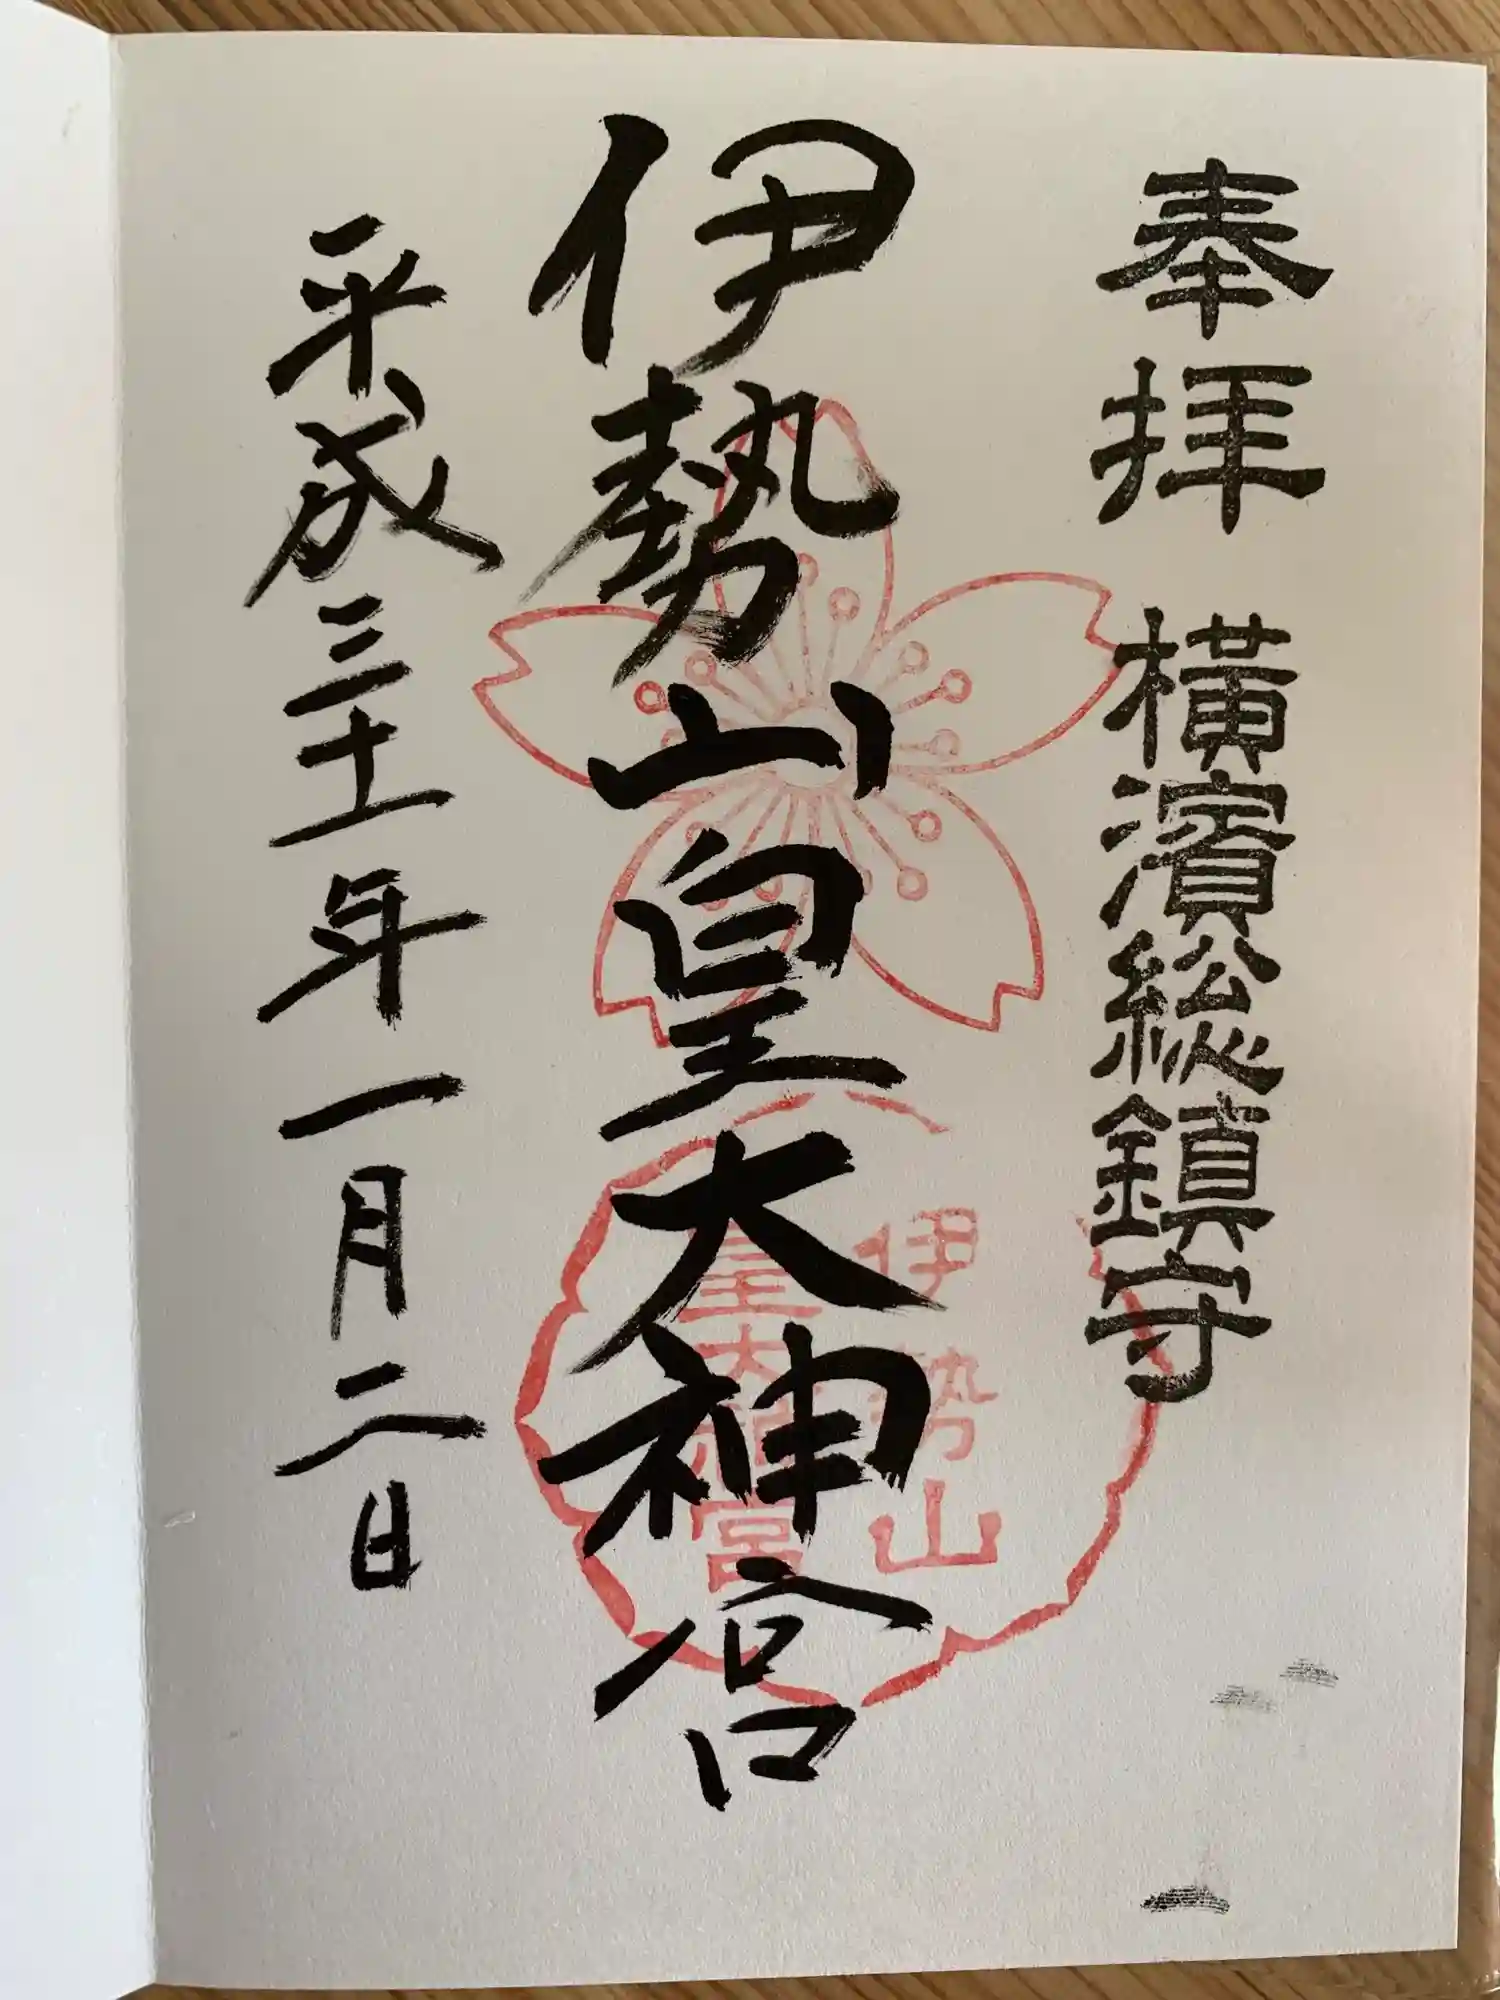 奉拝 横濱総鎮守
伊勢山皇大神宮
平成三十一年一月二日
伊勢山
皇大神宮